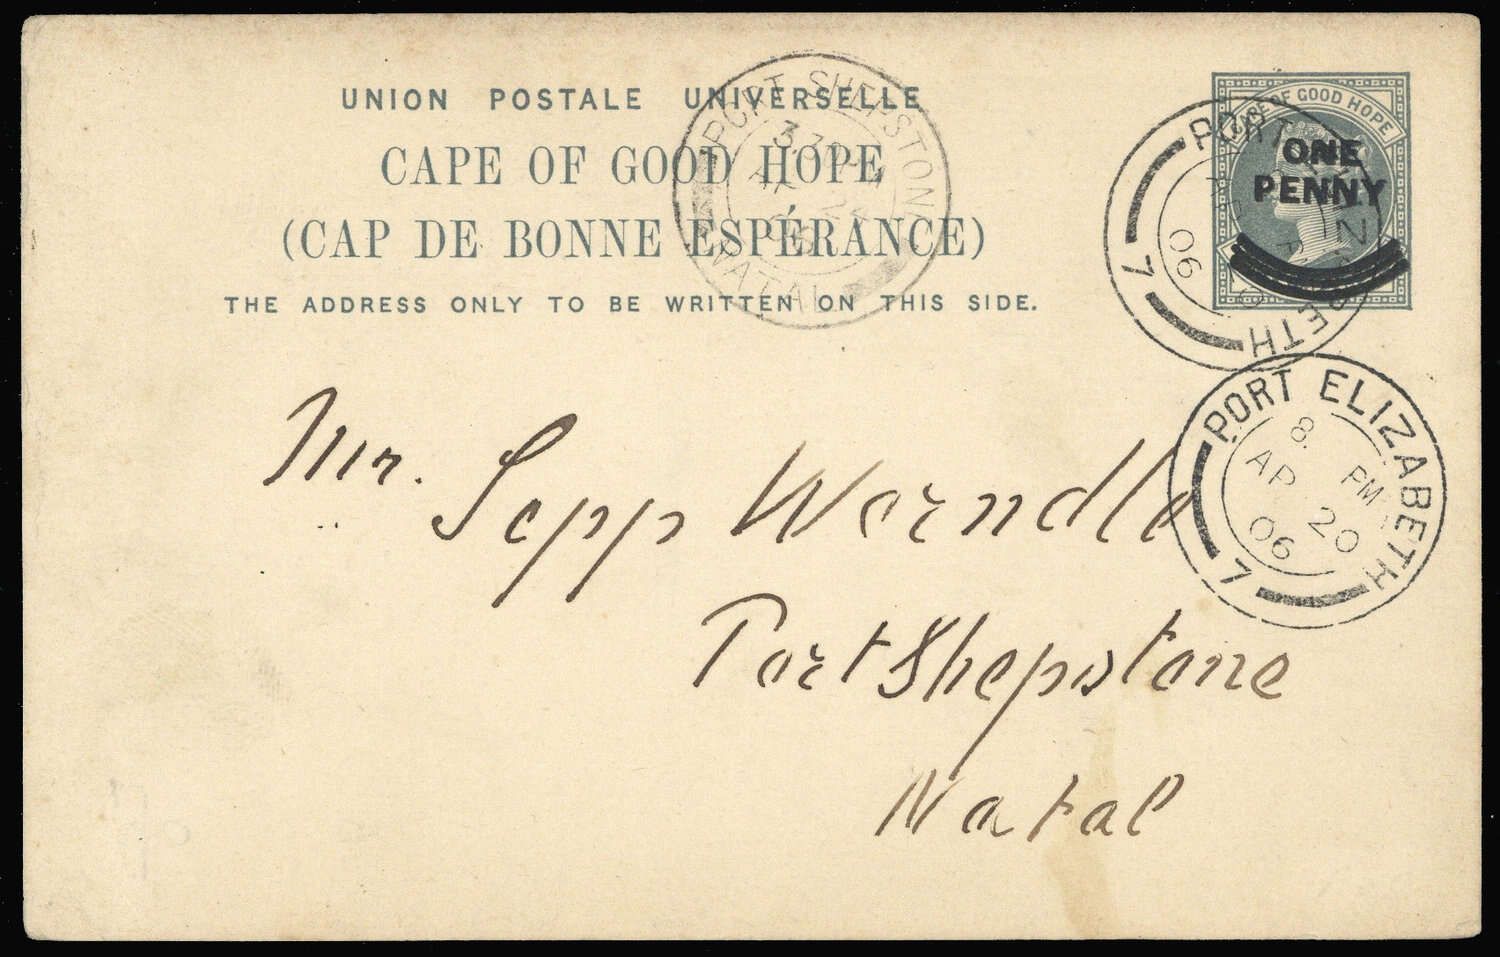 UNION POSTALE UNIVERSELLE
CAPE OF GOOD HOPE
(CAP DE BONNE ESPÉRANCE)
THE ADDRESS ONLY TO BE WRITTEN ON THIS SIDE.
CAPE OF GOOD HOPE
ONE
PENNY
PORT SHEPSTONE
NATAL
PORT ELIZABETH
06
7
PORT ELIZABETH
8 PM
AP 20
06
7
Mr. Sepp Werndle
Port Shepstone
Natal